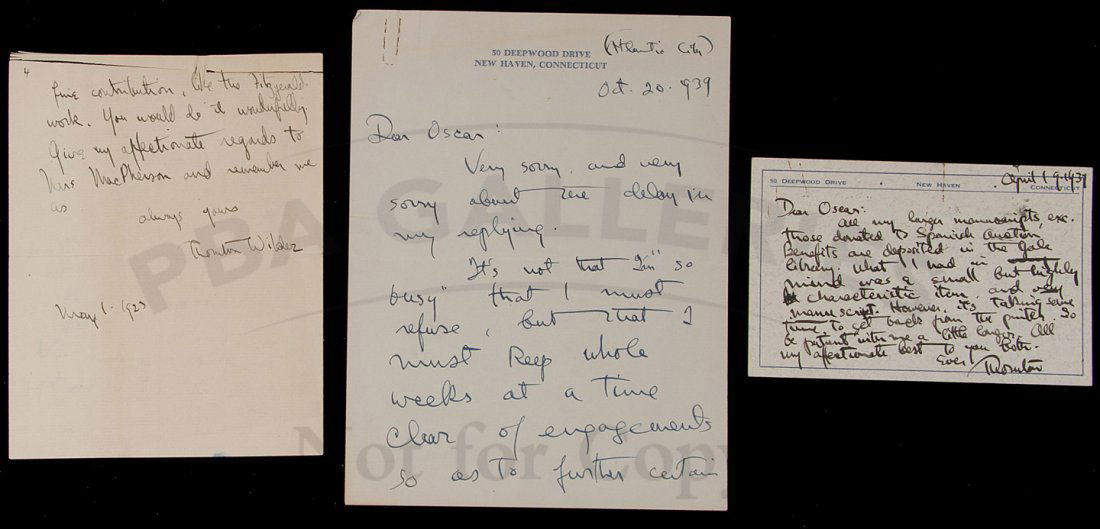 4
fine contribution, like the Fitzgerald
work. You would do it wonderfully.
Give my affectionate regards to
MacPherson and remember me
as
always yours
Thornton Wilder
May 1.
50 DEEPWOOD DRIVE
NEW HAVEN, CONNECTICUT
(Atlantic City)
Oct. 20. 1939
Dear Oscar:
Very sorry and very
sorry about the delay in
my replying.
"It's not that I'm so
busy" that I must
refuse, but that I
must keep whole
weeks at a time
clear of engagements
so as to further certain
50 DEEPWOOD DRIVE • NEW HAVEN • CONNECTICUT
April 19 1939
Dear Oscar:
All my larger manuscripts, exc.
those donated to Spanish auction
benefits are deposited in the Yale
Library. What I had in
mind was a small but highly
characteristic item, and very
manuscript. However, it's taking some
time to get back from the printer. So
be patient with me a little longer. All
my affectionate best to you both.
Ever
Thornton
PBA GALLER
Not for Copy